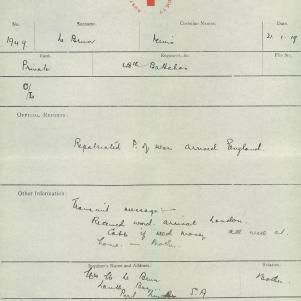 No.
Surname.
Christian Names.
Date.
1949
Le Brun
Lewis
21.1.19
Rank.
Regiment, &c.
File No.
Private
48th Battalion
OFFICIAL REPORTS:
Repatriated P. of war arrived England.
Other Information:
Transmit message:-
Received word arrival London.
Cable if need money all well at
home. — Brother.
Enquirer's Name and Address.
Relation.
Le Brun
Brother.
Port S.A